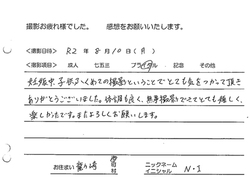 撮影お疲れ様でした。 感想をお願いいたします。
<撮影日時> R2年8月10日(月)
<撮影項目> 成人 七五三 ブライダル 記念 その他
妊娠中、子供もふくめての撮影ということでとても気をつかって頂き
ありがとうございました。体調も良く、無事撮影できてとても嬉しく、
楽しかったです。またよろしくお願いします。
お住まい 市 村 ニックネーム イニシャル N・I